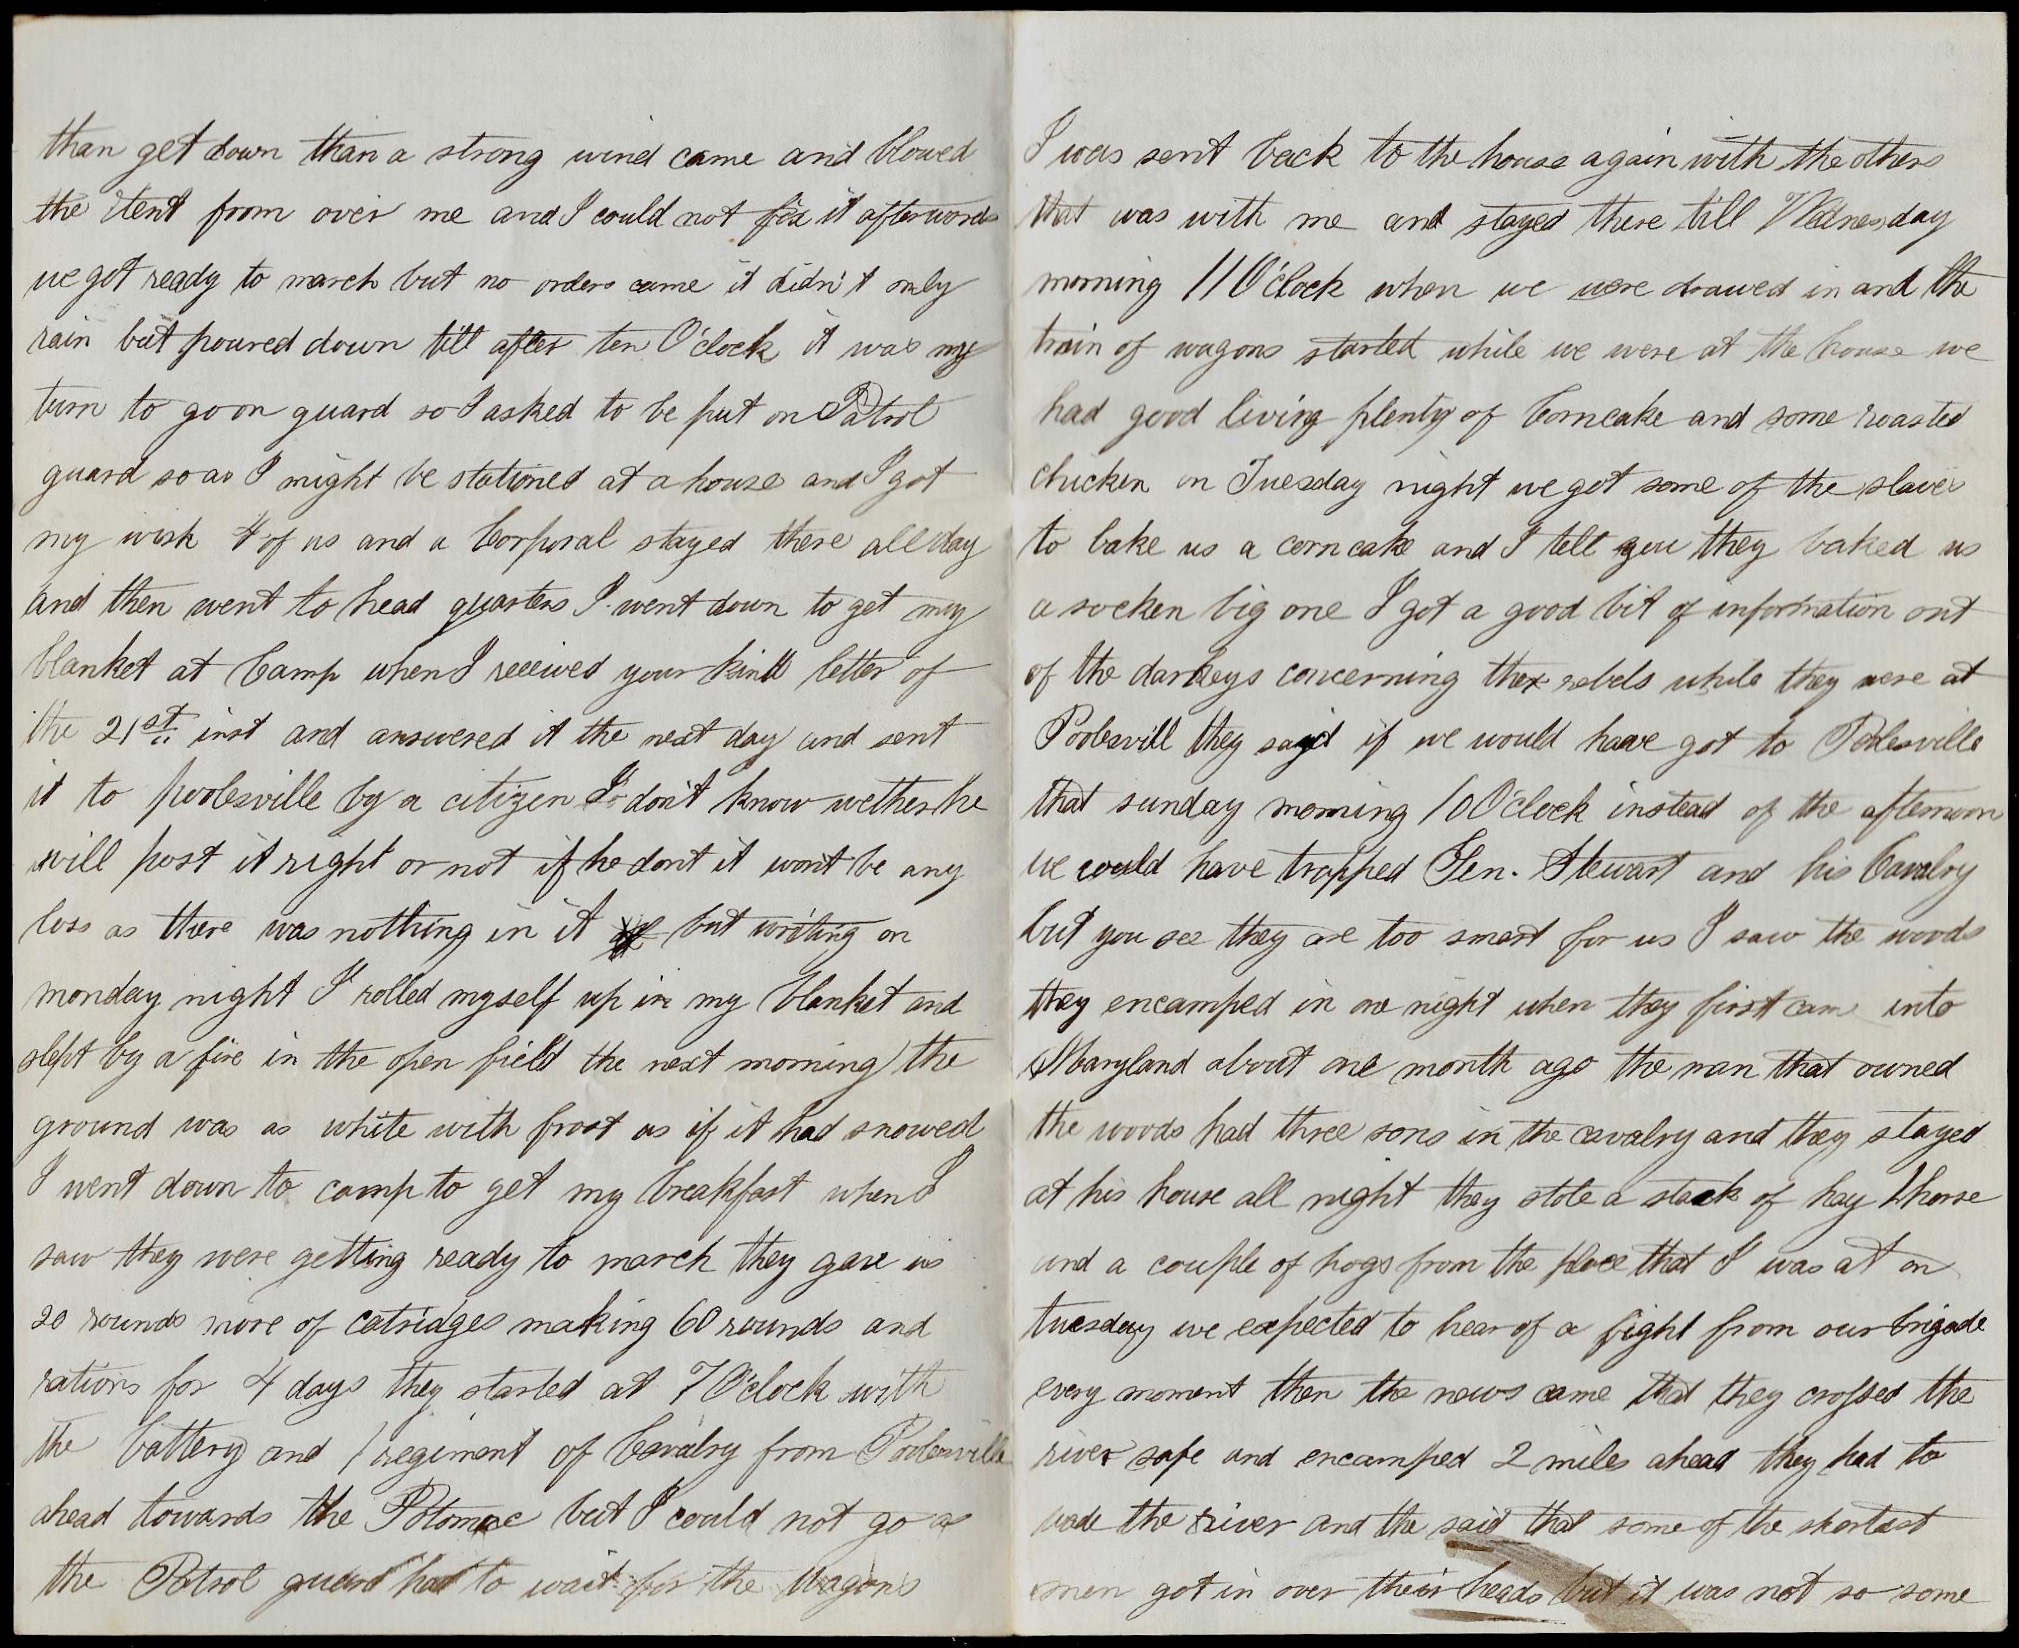 than get down than a strong wind came and blowed
the tent from over me and I could not fix it afterwords
we got ready to march but no orders came it didn't only
rain but poured down till after ten O'clock it was my
turn to go on guard so I asked to be put on Patrol
guard so as I might be stationed at a house and I got
my wish 4 of us and a Corporal stayed there all day
and then went to head quarters I went down to get my
blanket at Camp when I received your kind letter of
the 21st inst and answered it the next day and sent
it to poolesville by a citizen I don't know wether he
will post it right or not if he dont it wont be any
loss as there was nothing in it but writing on
monday night I rolled myself up in my blanket and
slept by a fire in the open field the next morning the
ground was as white with frost as if it had snowed
I went down to camp to get my breakfast when I
saw they were getting ready to march they gave us
20 rounds more of catridges making 60 rounds and
rations for 4 days they started at 7 O'clock with
the battery and 1 regiment of Cavalry from Poolesville
ahead towards the Potomac but I could not go as
the Patrol guard had to wait for the wagons
I was sent back to the house again with the others
that was with me and stayed there till Wednesday
morning 11 O'clock when we were drawed in and the
train of wagons started while we were at the house we
had good living plenty of Corncake and some roasted
chicken on Tuesday night we got some of the slaves
to bake us a corn cake and I tell you they baked us
a socken big one I got a good bit of information out
of the darkeys concerning the rebels while they were at
Poolesvill they said if we would have got to Poolesville
that sunday morning 10 O'clock instead of the afternoon
we could have trapped Gen. Stewart and his Cavalry
but you see they are too smart for us I saw the woods
they encamped in one night when they first cam into
Maryland about one month ago the man that owned
the woods had three sons in the cavalry and they stayed
at his house all night they stole a stack of hay 1 horse
and a couple of hogs from the place that I was at on
tuesday we expected to hear of a fight from our brigade
every moment then the news came that they crossed the
river safe and encamped 2 miles ahead they had to
wade the river and the said that some of the shortest
men got in over their heads but it was not so some